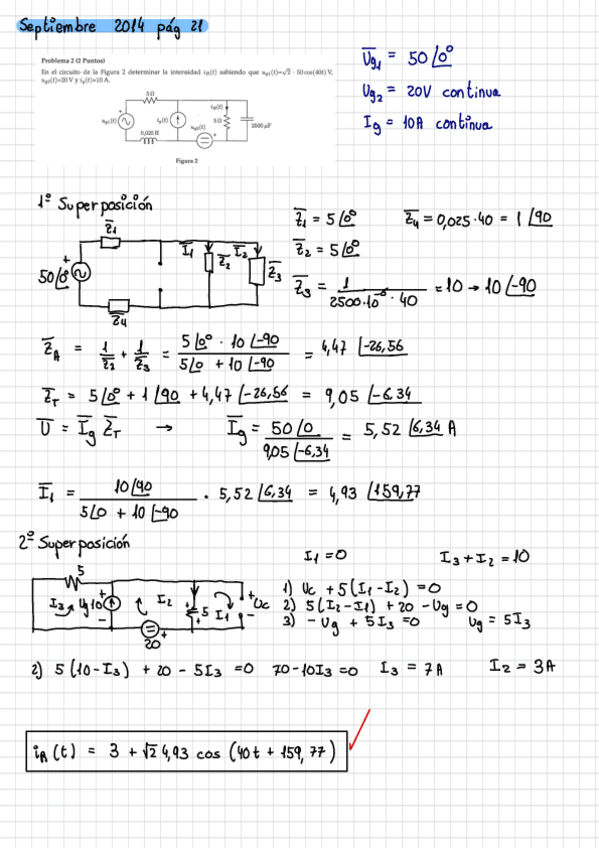 Septiembre 2014 pág 21
Problema 2 (2 Puntos)
En el circuito de la Figura 2 determinar la intensidad i_R(t) sabiendo que u_g1(t)=√2 · 50 cos(40t) V,
u_g2(t)=20 V y i_g(t)=10 A.
5 Ω
i_R(t)
u_g1(t)
i_g(t)
5 Ω
2500 μF
u_g2(t)
0,025 H
Figura 2
U̅g1 = 50∠0°
Ug2 = 20V continua
Ig = 10A continua
1º Superposición
Z̅1
I̅1
I̅2
Z̅2
Z̅3
50∠0°
Z̅4
Z̅1 = 5∠0°
Z̅4 = 0,025·40 = 1∠90
Z̅2 = 5∠0°
Z̅3 = 1 / (2500·10^-6 · 40) = 10 → 10∠-90
Z̅A = 1/Z2 + 1/Z3 = (5∠0° · 10∠-90) / (5∠0 + 10∠-90) = 4,47∠-26,56
Z̅T = 5∠0° + 1∠90 + 4,47∠-26,56 = 9,05∠-6,34
U̅ = I̅g Z̅T → I̅g = 50∠0 / 9,05∠-6,34 = 5,52∠6,34 A
I̅1 = 10∠90 / (5∠0 + 10∠-90) · 5,52∠6,34 = 4,93∠159,77
2º Superposición
I1=0
I3+I2=10
5
I3
Ug
10
I2
5
I1
Uc
20
1) Uc + 5(I1-I2) = 0
2) 5(I2-I1) + 20 - Ug = 0
3) - Ug + 5I3 = 0
Ug = 5I3
2) 5(10-I3) + 20 - 5I3 = 0
70-10I3=0
I3 = 7A
I2 = 3A
iR(t) = 3 + √2 4,93 cos (40t + 159,77)